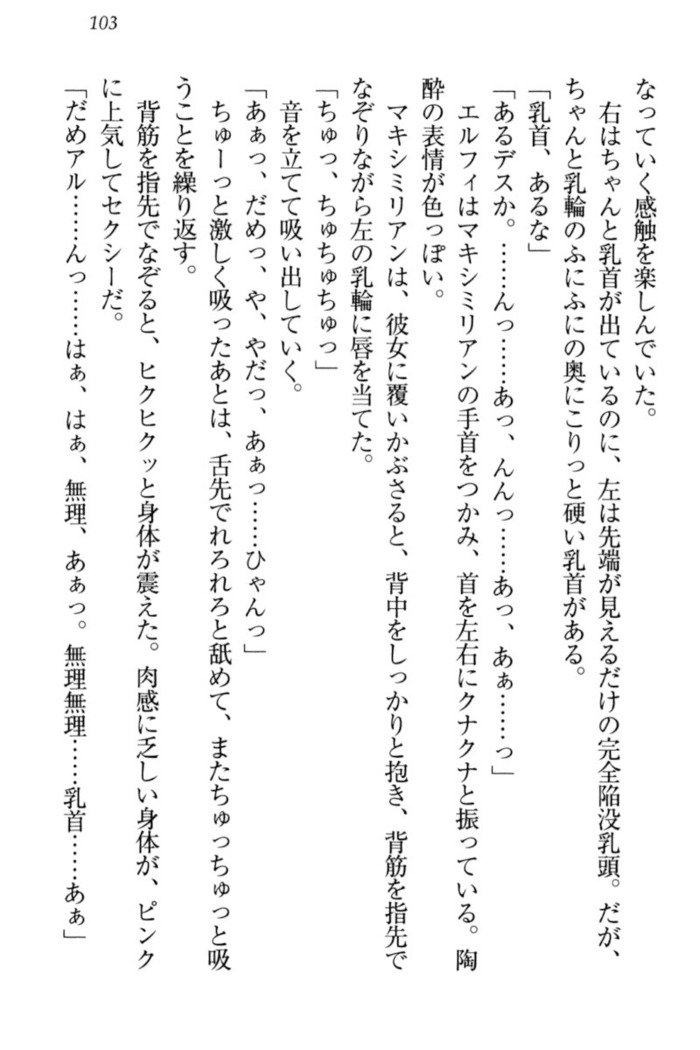 103
なっていく感触を楽しんでいた。
右はちゃんと乳首が出ているのに、左は先端が見えるだけの完全陥没乳頭。だが、
ちゃんと乳輪のふにふにの奥にこりっと硬い乳首がある。
「乳首、あるな」
「あるデスか。……んっ……あっ、んんっ……あっ、あぁ……っ」
エルフィはマキシミリアンの手首をつかみ、首を左右にクナクナと振っている。陶
酔の表情が色っぽい。
マキシミリアンは、彼女に覆いかぶさると、背中をしっかりと抱き、背筋を指先で
なぞりながら左の乳輪に唇を当てた。
「ちゅっ、ちゅちゅちゅっ」
音を立てて吸い出していく。
「あぁっ、だめっ、や、やだっ、あぁっ……ひゃんっ」
ちゅーっと激しく吸ったあとは、舌先でれろれろと舐めて、またちゅっちゅっと吸
うことを繰り返す。
背筋を指先でなぞると、ヒクヒクッと身体が震えた。肉感に乏しい身体が、ピンク
に上気してセクシーだ。
「だめアル……んっ……はぁ、はぁ、無理、あぁっ。無理無理……乳首……あぁ」